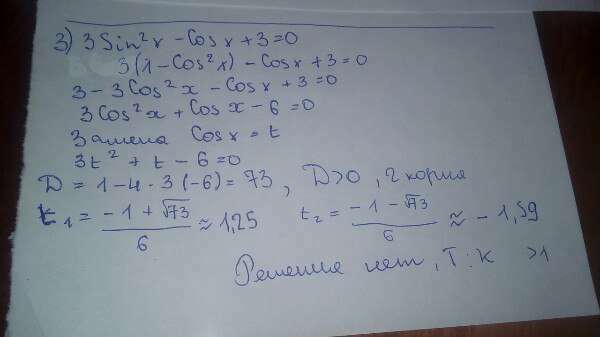 3) 3 Sin²x - Cos x + 3 = 0
3(1 - Cos²x) - Cos x + 3 = 0
3 - 3Cos²x - Cos x + 3 = 0
3Cos²x + Cos x - 6 = 0
Замена Cos x = t
3t² + t - 6 = 0
D = 1 - 4 · 3 (-6) = 73 , D>0 , 2 корня
t₁ = (-1 + √73)/6 ≈ 1,25 t₂ = (-1 - √73)/6 ≈ -1,59
Решения нет, т.к >1